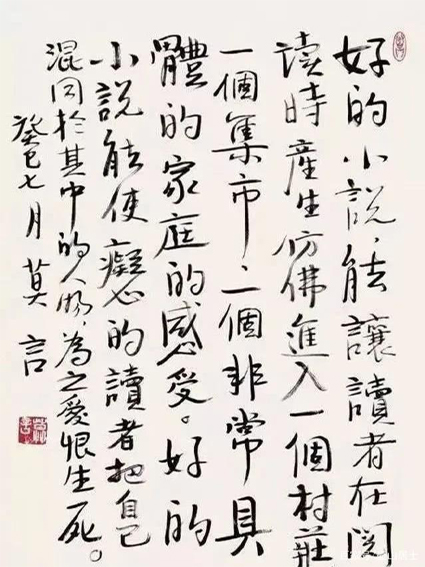 好的小說，能讓讀者在閱
读時產生仿佛進入一個村莊
一個集市、一個非常具
體的家庭的感受。好的
小說能使癡心的讀者把自己
混同於其中的人物，為之愛恨生死。
癸巳七月 莫言